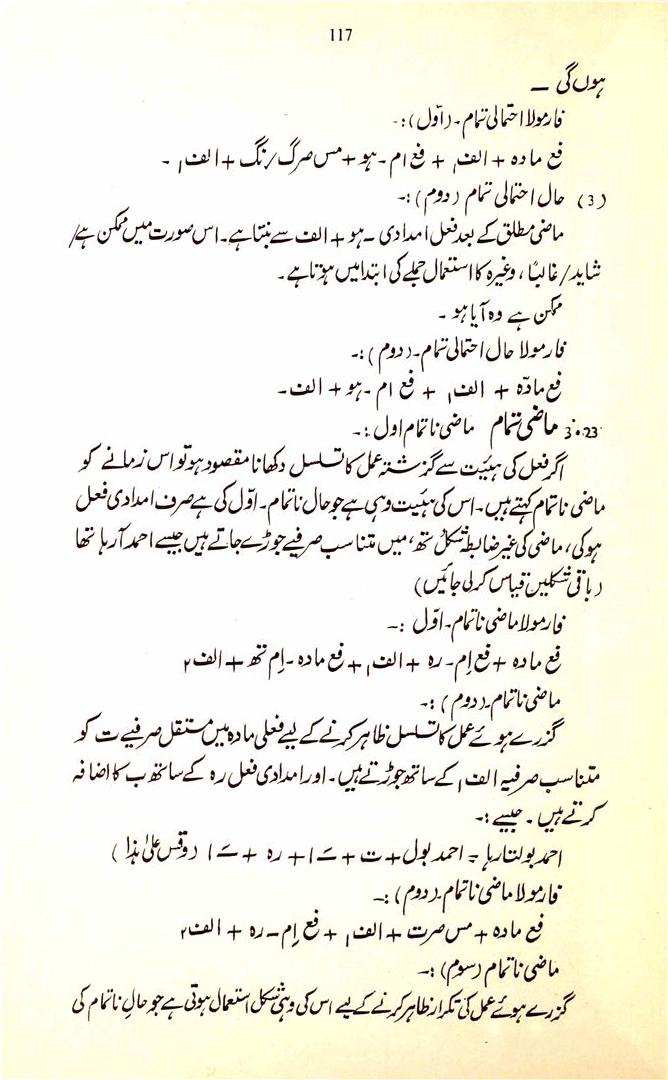 117
ہوں گی ــ
فارمولا احتمالی تمام۔ (اوّل) :۔
فع مادہ + الف۱ + فع ام۔ ہو + مس صرگ / نگ + الف۱ ۔
(3) حال احتمالی تمام (دوم) :۔
ماضی مطلق کے بعد فعل امدادی ۔ ہو + الف سے بنتا ہے۔ اس صورت میں ممکن ہے /
شاید / غالباً ، وغیرہ کا استعمال جملے کی ابتدا میں ہوتا ہے۔
ممکن ہے وہ آیا ہو ۔
فارمولا حال احتمالی تمام۔ (دوم) :۔
فع مادّہ + الف۱ + فع ام ۔ ہو + الف۔
3.23 ماضی تمام ماضی ناتمام اول :۔
اگر فعل کی ہیئت سے گزشتہ عمل کا تسلسل دکھانا مقصود ہو تو اس زمانے کو
ماضی ناتمام کہتے ہیں۔ اس کی ہیئت وہی ہے جو حال ناتمام۔ اوّل کی ہے صرف امدادی فعل
ہو کی، ماضی کی غیر ضابطہ شکل 'تھ' میں متناسب صرفیے جوڑے جاتے ہیں جیسے احمد آ رہا تھا
(باقی شکلیں قیاس کر لی جائیں)
فارمولا ماضی ناتمام۔ اوّل :۔
فع مادہ + فع اِم۔ رہ + الف۱ + فع مادہ ۔ اِم تھ + الف۲
ماضی ناتمام۔ (دوم) :۔
گزرے ہوئے عمل کا تسلسل ظاہر کرنے کے لیے فعلی مادہ میں مستقل صرفیے ت کو
متناسب صرفیہ الف۱ کے ساتھ جوڑتے ہیں۔ اور امدادی فعل رہ کے ساتھ ب کا اضافہ
کرتے ہیں ۔ جیسے :۔
احمد بولتا رہا = احمد بول + ت + ــَـ ا + رہ + ــَـ ا (وقس علیٰ ہذا)
فارمولا ماضی ناتمام۔ (دوم) :۔
فع مادہ + مس صرت + الف۱ + فع اِم ــ رہ + الف۲
ماضی ناتمام (سوم) :۔
گزرے ہوئے عمل کی تکرار ظاہر کرنے کے لیے اس کی وہی شکل استعمال ہوتی ہے جو حالِ ناتمام کی